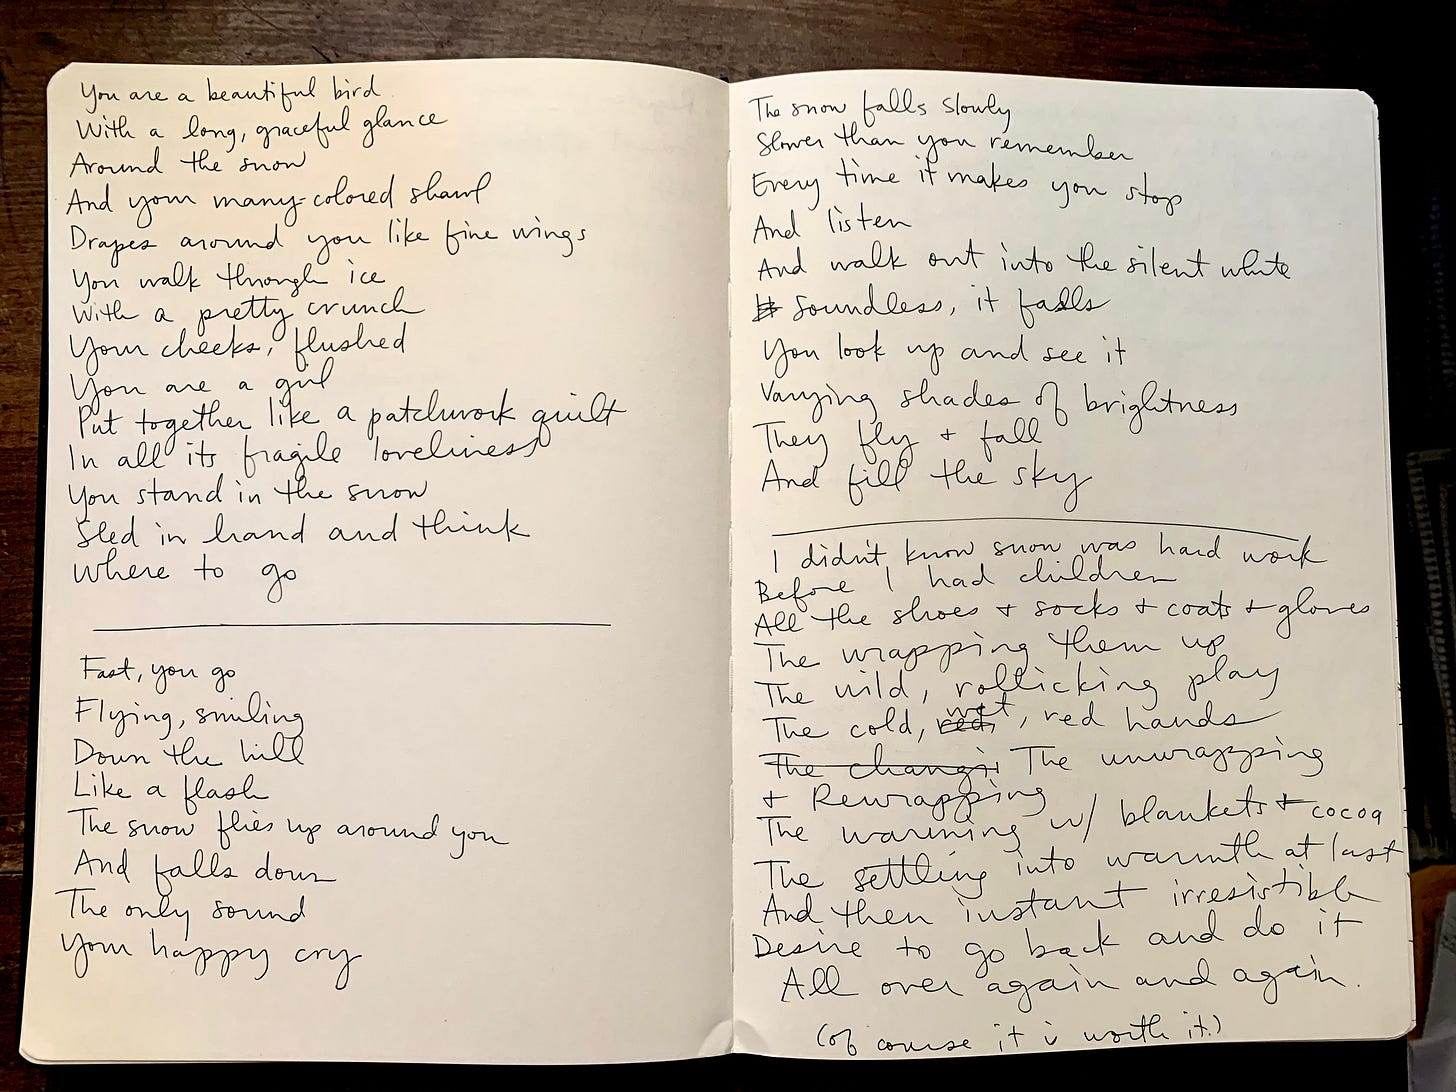 You are a beautiful bird
With a long, graceful glance
Around the snow
And your many-colored shawl
Drapes around you like fine wings
You walk through ice
With a pretty crunch
Your cheeks, flushed
You are a girl
Put together like a patchwork quilt
In all its fragile loveliness
You stand in the snow
Sled in hand and think
Where to go
Fast, you go
Flying, smiling
Down the hill
Like a flash
The snow flies up around you
And falls down
The only sound
Your happy cry
The snow falls slowly
Slower than you remember
Every time it makes you stop
And listen
And walk out into the silent white
Soundless, it falls
You look up and see it
Varying shades of brightness
They fly + fall
And fill the sky
I didn't know snow was hard work
Before I had children
All the shoes + socks + coats + gloves
The wrapping them up
The wild, rollicking play
The cold, red, wet, red hands
The changi The unwrapping
+ Rewrapping
The warming w/ blankets + cocoa
The settling into warmth at last
And then instant irresistible
Desire to go back and do it
All over again and again.
(of course it is worth it.)